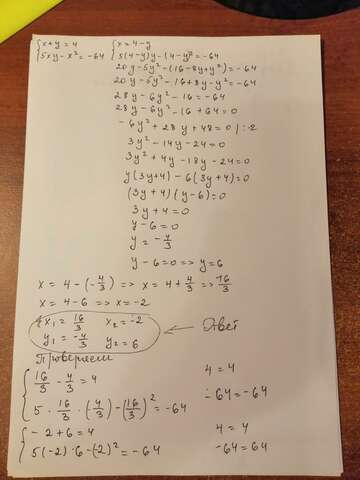 {x+y=4 {x=4-y
5xy-x²=-64 5(4-y)y-(4-y)²=-64
20y-5y²-(16-8y+y²)=-64
20y-5y²-16+8y-y²=-64
28y-6y²-16=-64
28y-6y²-16+64=0
-6y²+28y+48=0 |:-2
3y²-14y-24=0
3y²+4y-18y-24=0
y(3y+4)-6(3y+4)=0
(3y+4)(y-6)=0
3y+4=0
y-6=0
y=-4/3
y-6=0=>y=6
x=4-(-4/3)=>x=4+4/3=>16/3
x=4-6=>x=-2
x₁=16/3 x₂=-2 ← Ответ
y₁=-4/3 y₂=6
Проверяем
{16/3-4/3=4 4=4
5·16/3·(-4/3)-(16/3)²=-64 -64=-64
{-2+6=4 4=4
5(-2)·6-(-2)²=-64 -64=64